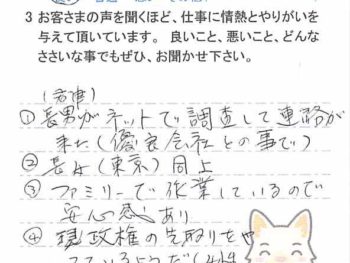 3 お客さまの声を聞くほど、仕事に情熱とやりがいを
与えて頂いています。 良いこと、悪いこと、どんな
ささいな事でもぜひ、お聞かせ下さい。
(君津)
① 長男がネットで調査して連絡が
来た(優良会社との事で)
② 長女(東京)同上
③ ファミリーで作業しているので
安心感あり
④ 現政権の先取りをや
っているようだ